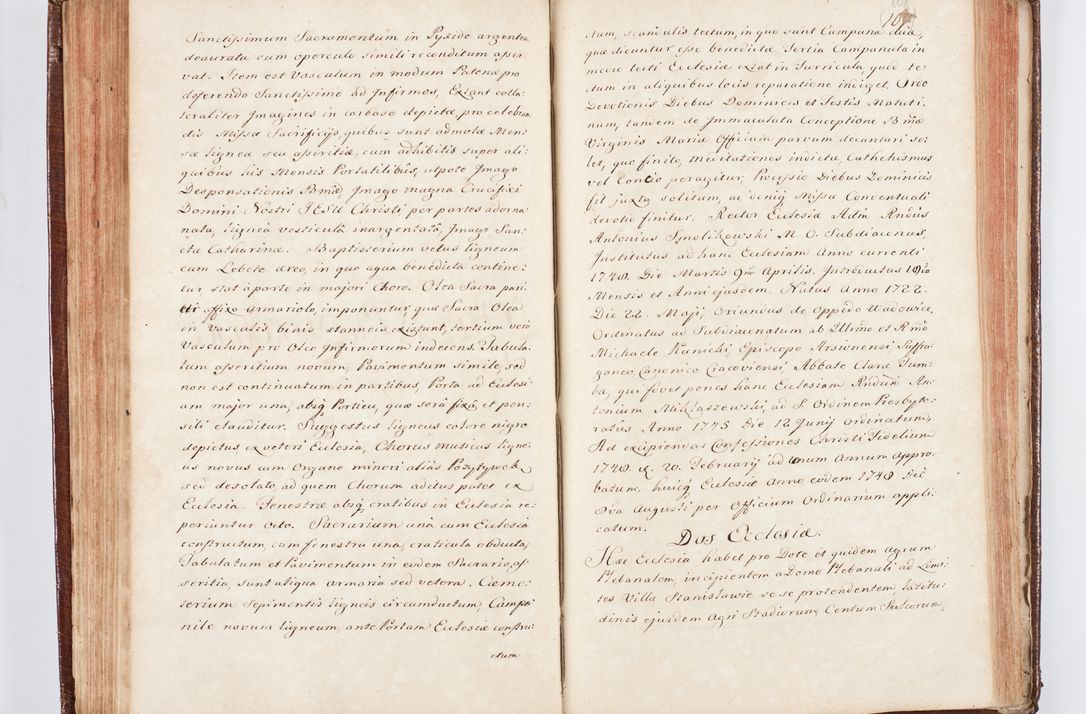 Sanctissimum Sacramentum in Pyxide argentea
deaurata cum operculo simili reconditum asser
vat. Item est Vasculum in modum Patenæ pro
deferendo Sanctissimo ad Infirmos, Extant colla:
teraliter Imagines in carbaso depictæ, pro celebran
dis Missæ Sacrificijs, quibus sunt admotæ Men
sæ ligneæ seu asseritiæ, cum adhibitis super ali:
quibus his Mensis Portatilibus, utpote Imago
Desponsationis Bmæ, Imago magna Crucifixi
Domini Nostri JESU Christi per partes adorna:
nata, ligneâ vesticulâ inargentatâ, Imago San:
ctæ Catharinæ. Baptisterium vetus ligneum
cum Lebete æreo, in quo aqua benedicta contine:
tur, stat à parte in majori Choro. Olea Sacra pari
eti affixo armariolo, imponuntur quæ Sacra Olea
in vasculis binis stanneis existunt, tertium verò
Vasculum pro Oleo Infirmorum indecens. Tabula:
tum asseritium novum, Pavimentum simile, sed
non est continuatum in partibus, Porta ad Ecclesi:
am major una, absq Porticu, quæ serâ fixâ, et pen:
sili clauditur. Suggestus ligneus colore nigro
depictus ex veteri Ecclesia, Chorus musicus ligne:
us novus cum Organo minori aliàs Pozytywek
sed desolato, ad quem Chorum aditus patet ex
Ecclesia. Fenestræ absq cratibus in Ecclesia re:
periuntur Octo. Sacrarium unà cum Ecclesia
constructum, cum fenestra una, craticula obducta,
Tabulatum et Pavimentum in eodem Sacrario, as
seritia, sunt aliqua armaria sed vetera. Cæme:
terium Sepimentis ligneis circumductum, Campa
nile novum ligneum, ante Portam Ecclesiæ constru:
ctum
107
ctum, scandulis tectum, in quo sunt Campanæ duæ,
quæ dicuntur esse benedictæ. Tertia Campanula in
medio tecti Ecclesiæ extat in Turricula, quæ te:
ctum in aliquibus locis reparatione indiget. Ordo
Devotionis Diebus Dominicis et Festis Matuti:
num, tandem de Immaculata Conceptione B mæ
Virginis Mariæ Officium parvum decantari so:
let, quo finito, indicta, Cathechismus
vel Concio peragitur, Processio Diebus Dominicis
fit juxta solitum, ac deniq Missa Conventuali
devotio finitur. Rector Ecclesiæ Adm Rndus
Antonius Smolikowski M. O. Subdiaconus,
Institutus ad hanc Ecclesiam Anno currenti
1748. Die Martis 9na Aprilis. Introductus 18va
Mensis et Anni ejusdem. Natus Anno 1722.
Die 22. Maij, Oriundus de Oppido Wadowice,
Ordinatus ad Subdiaconatum ab Illrmo et Rmo
Michaele Kunicki, Episcopo Arsionensi Suffra:
ganeo, Canonico Cracoviensi, Abbate Claræ Tum:
bæ, qui fovet penes hanc Ecclesiam Rndum An:
tonium Miklaszewski, ad S. Ordinem Presbyte:
ratus Anno 1745 Die 12 Junij ordinatum,
Ad excipiendas Confessiones Christi Fidelium
1748 20. Februarij ad unum Annum Appro:
batum, huicq Ecclesiæ Anno eodem 1748 Die
8va Augusti per Officium Ordinarium appli:
catum.
Dos Ecclesiæ.
Hæc Ecclesia habet pro Dote et quidem Agrum
Plebanalem, incipientem a Domo Plebanali ad Limi:
tes Villæ Stanisławie se se protendentem, latitu:
dinis ejusdem Agri Stadiorum, Centum Sulcorum,